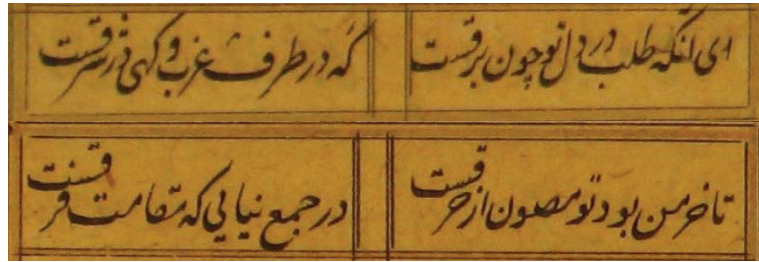 ای آنکه طلب در دل تو چون برقست
گه در طرف غرب و گهی در شرقست
تا خرمن بود تو مصون از حرقست
در جمع نیایی که مقامت فرقست